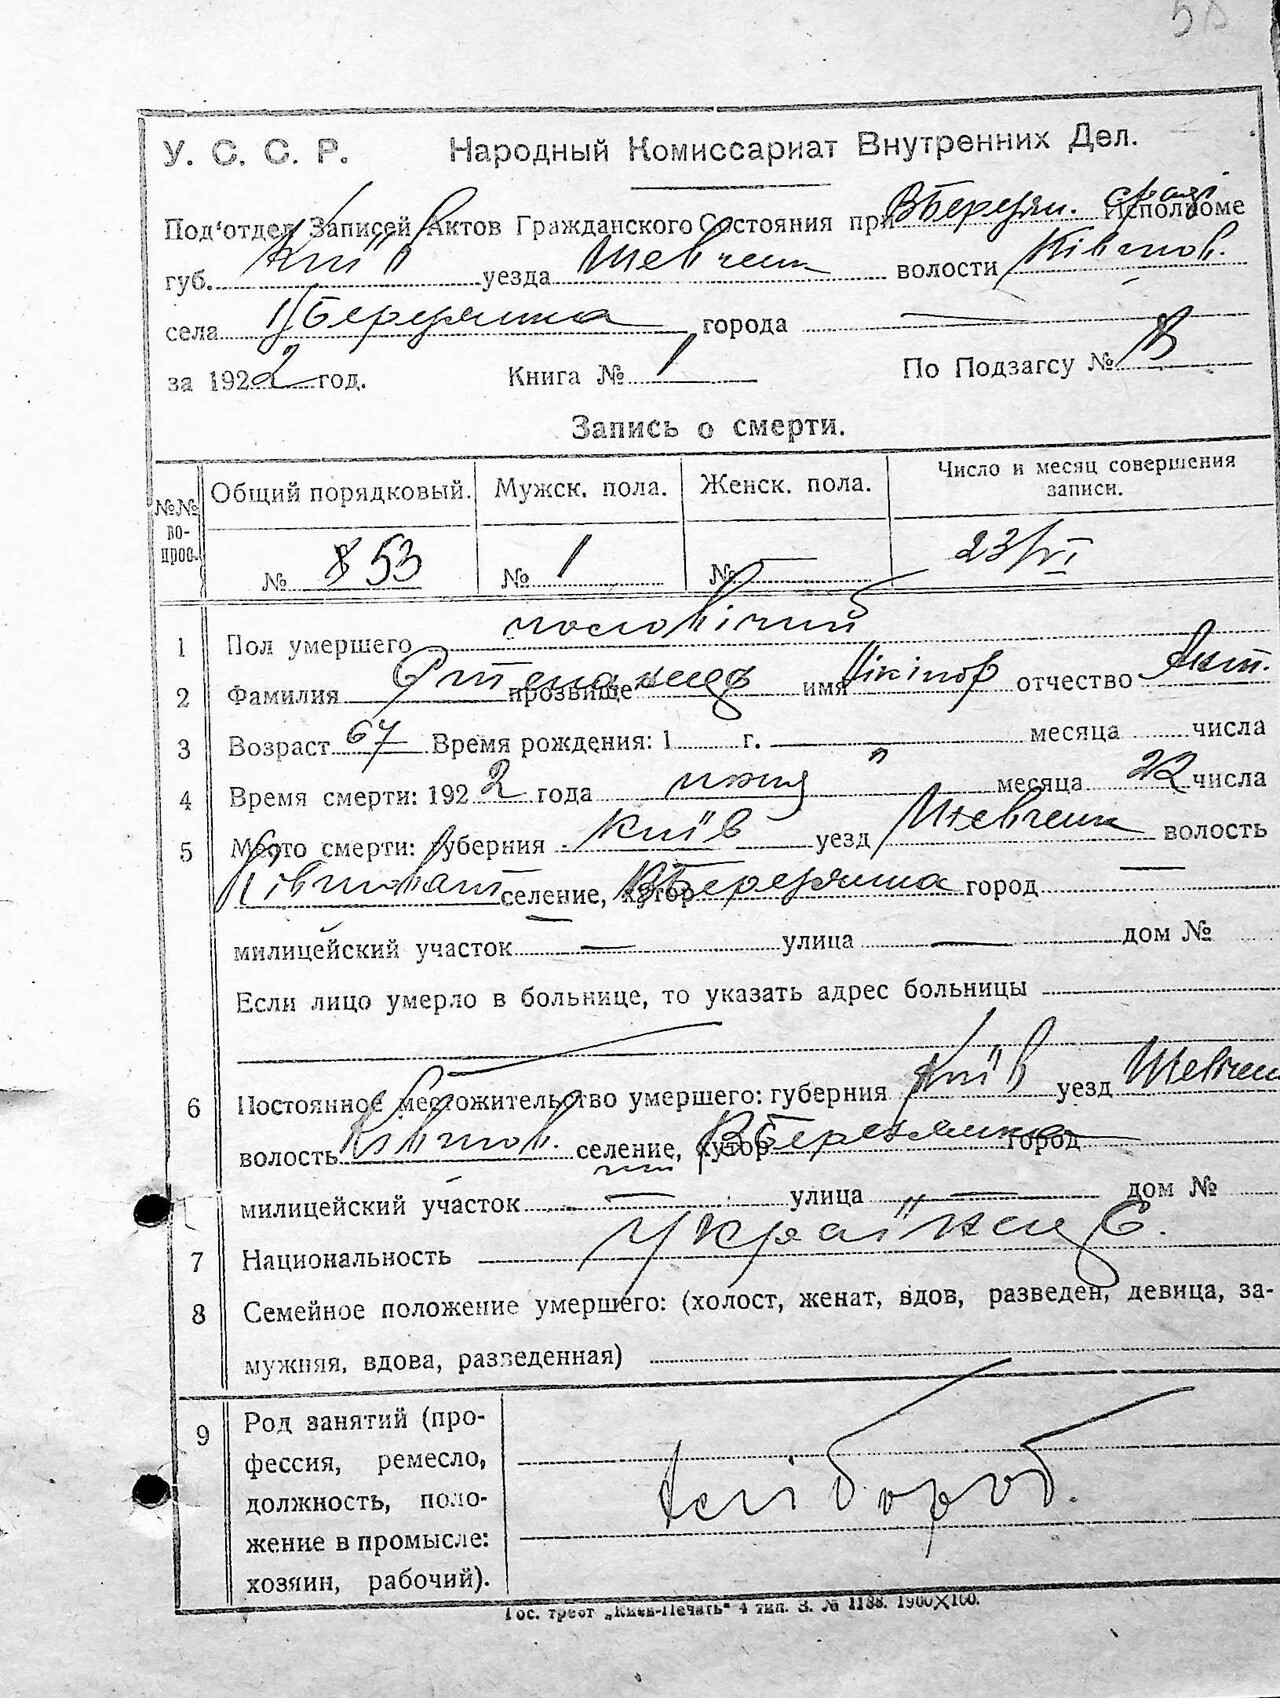 У. С. С. Р. Народный Комиссариат Внутренних Дел.
Под'отдел Записей Актов Гражданского Состояния при ВБерезян. Исполкоме
губ. Київ уезда Шевченк волости Ківшов.
села ВБерезянка города —
за 1922 год. Книга № 1 По Подзагсу №
Запись о смерти.
№№ вопрос. Общий порядковый. Мужск. пола. Женск. пола. Число и месяц совершения записи.
№ 53 № 1 № — 23/VI
1 Пол умершего чоловічий
2 Фамилия прозвище имя отчество
3 Возраст 67 Время рождения: 1 г. — месяца числа
4 Время смерти: 1922 года июня месяца 22 числа
5 Место смерти: губерния Київ уезд Шевченк волость
Ківшоват селение, хутор ВБерезянка город —
милицейский участок — улица — дом №
Если лицо умерло в больнице, то указать адрес больницы
6 Постоянное местожительство умершего: губерния Київ уезд Шевченк
волость Ківшов. селение, хутор ВБерезянка город
милицейский участок — улица — дом №
7 Национальность Українець.
8 Семейное положение умершего: (холост, женат, вдов, разведен, девица, за-
мужняя, вдова, разведенная)
9 Род занятий (про-
фессия, ремесло,
должность, поло-
жение в промысле:
хозяин, рабочий).
хлібороб.
Гос. трест „Киев-Печать" 4 тип. З. № 1188. 1900×100.